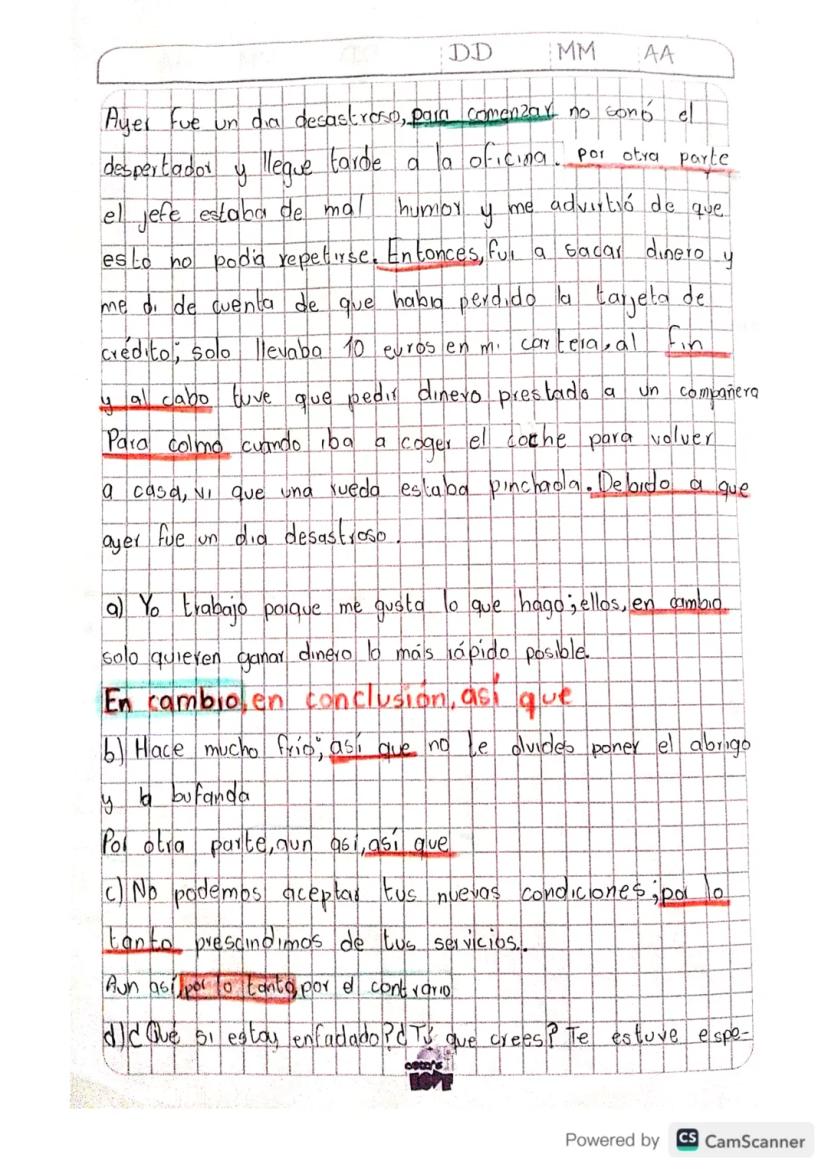 DD MM AA
Ayer fue un dia desastroso, para comenzar no sonó el
despertador y llegue tarde a la oficina. por otra parte
el jefe estaba de mal humor y me advirtió de que
esto no podia repetirse. Entonces, fui a sacar dinero y
me di de cuenta de que habia perdido la tarjeta de
crédito; solo llevaba 10 euros en mi cartera, al fin
y al cabo tuve que pedir dinero prestado a un compañero
Para colmo cuando iba a coger el coche para volver
a casa, vi que una rueda estaba pinchada. Debido a que
ayer fue un dia desastroso.
a) Yo trabajo porque me gusta lo que hago; ellos, en cambio
solo quieren ganar dinero lo más rápido posible.
En cambio, en conclusión, así que
b) Hace mucho frío; así que no te olvides poner el abrigo
y la bufanda
Por otra parte, aun asi, así que
c) No podemos aceptar tus nuevas condiciones; por lo
tanto prescindimos de tus servicios.
Aun así, por lo tanto, por el contrario
d) ¿Qué si estoy enfadado? ¿Tú que crees? Te estuve espe-
Powered by CS CamScanner